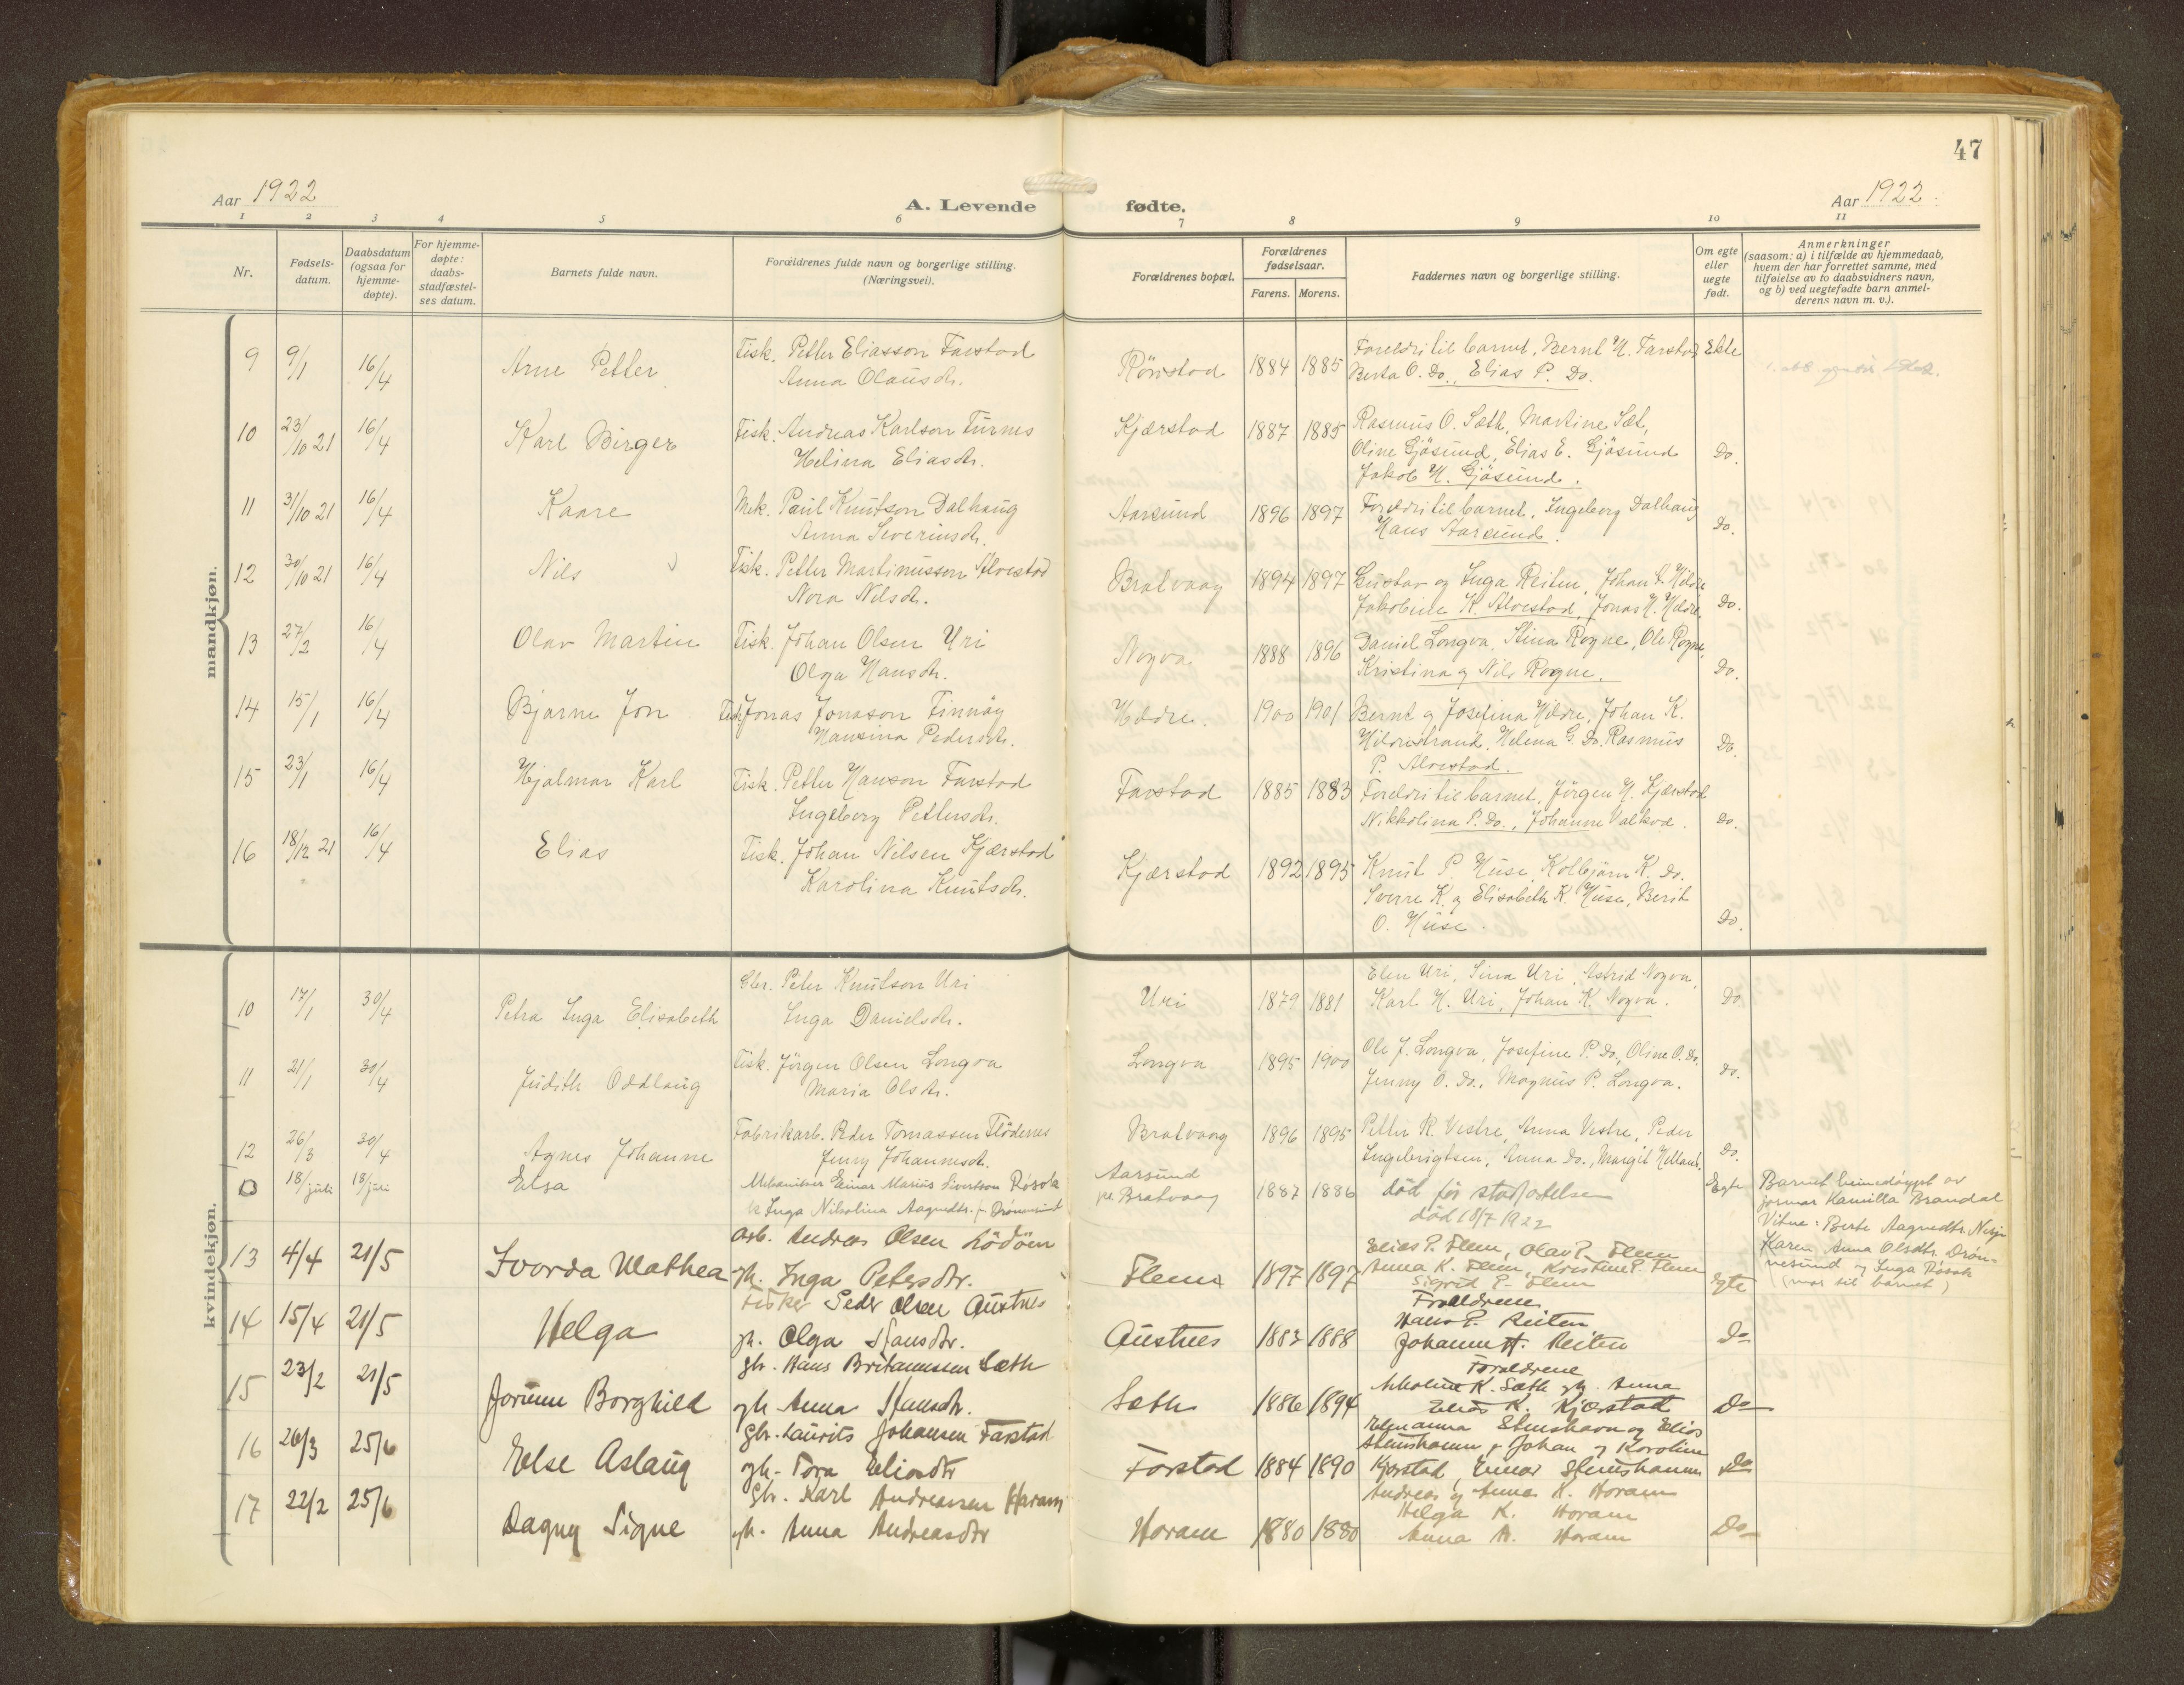 47
Aar 1922
A. Levende fødte.
Aar 1922.
1 2 3 4 5 6 7 8 9 10 11
Nr.
Fødsels-
datum.
Daabsdatum
(ogsaa for
hjemme-
døpte).
For hjemme-
døpte:
daabs-
stadfæstel-
ses datum.
Barnets fulde navn.
Forældrenes fulde navn og borgerlige stilling.
(Næringsvei).
Forældrenes bopæl.
Forældrenes
fødselsaar.
Farens. Morens.
Faddernes navn og borgerlige stilling.
Om egte
eller
uegte
født.
Anmerkninger
(saasom: a) i tilfælde av hjemmedaab,
hvem der har forrettet samme, med
tilføielse av to daabsvidners navn,
og b) ved uegtefødte barn anmel-
derens navn m. v.).
mandkjøn.
9 9/1 16/4 Arne Petter Fisk. Petter Eliasson Farstad
Anna Olausdtr.
Rörstad 1884 1885 Foreldri til barnet, Bernt N. Farstad Ekte
Berta O. Do., Elias P. Do.
10 23/10 21 16/4 Karl Birger Fisk. Andreas Karlson Turnes
Helina Eliasdtr.
Kjærstad 1887 1885 Rasmus O. Sæth, Martine Sæt,
Oline Gjösund, Elias E. Gjösund Do.
Jakob N. Gjösund.
11 31/10 21 16/4 Kaare Mek. Paul Knutson Dalhaug
Anna Severinsdtr.
Aarsund 1896 1897 Foreldri til barnet, Ingeborg Dalhaug
Hans Aarsund. Do.
12 30/10 21 16/4 Nils Fisk. Petter Martinusson Alvestad
Nora Nilsdtr.
Bratvaag 1894 1897 Gustav og Inga Reiten, Johan Hildre
Jakobine K. Alvestad, Jonas N. Hildre Do.
13 27/2 16/4 Olav Martin Fisk. Johan Olsen Uri
Olga Hansdtr.
Nogva 1888 1896 Daniel Longva, Stina Rogne, Ole Rogne,
Kristina og Nils Rogne. Do.
14 15/1 16/4 Bjarne Jon Fisk. Jonas Jonason Finnöy
Hansina Pedersdtr.
Hildre. 1900 1901 Bernt og Josefina Hildre, Johan K.
Hildrestrand, Helena G. Do. Rasmus Do.
P. Alvestad.
15 23/1 16/4 Hjalmar Karl Fisk. Petter Hanson Farstad
Ingeborg Pettersdtr.
Farstad 1885 1883 Foreldri til barnet, Jörgen N. Kjærstad
Nikkolina P. Do., Johanne Valkvæ. Do.
16 18/12 21 16/4 Elias Fisk. Johan Nilsen Kjærstad
Karolina Knutsdtr.
Kjærstad 1892 1895 Knut P. Huse, Kolbjörn K. Do.
Sverre K. og Elisabeth K. Huse, Berit
O. Huse. Do.
kvindekjøn.
10 17/1 30/4 Petra Inga Elisabeth Gbr. Peter Knutson Uri
Inga Danielsdtr.
Uri 1879 1881 Elen Uri, Sina Uri, Astrid Nogva,
Karl H. Uri, Johan K. Nogva. Do.
11 21/1 30/4 Judith Oddlaug Fisk. Jörgen Olsen Longva
Maria Olsdtr.
Longva 1895 1900 Ole J. Longva, Josefine P. Do., Oline O. Do.
Jenny O. Do., Magnus P. Longva. Do.
12 26/3 30/4 Agnes Johanne Fabrikarb. Peder Tomassen Flödernes
Jenny Johannesdtr.
Bratvaag 1896 1895 Petter R. Vestre, Anna Vestre, Peder
Ingebrigtsen, Anna Do., Margit Helland. Do.
0 18/juli 18/juli Elsa Mekaniker Einar Marius Sivertsen Røsok
Inga Nikolina Aagnedtr. f. Drønnesund
Aarsund
Bratvaag 1887 1886 död för stadfæstelsen Egte
död 18/7 1922
Barnet heimedöypt av
jormor Kamilla Brandal
Vitne: Berte Aagnedtr. Nesje
Karen Anna Olsdtr. Drön-
nesund og Inga Røsok
(mor til barnet)
13 4/4 21/5 Svorda Mathea Arb. Andreas Olsen Lödöen
gh. Inga Petersdtr.
Flem 1897 1897 Elias P. Flem, Olav P. Flem
Anna K. Flem, Kristine P. Flem
Sigrid P. Flem Egte
14 15/4 21/5 Helga Fisker Peder Olsen Austnes
gh. Olga Hansdtr.
Austnes 1883 1888 Forældrene
Hans P. Reiten
Johanne H. Reiten Do
15 23/2 21/5 Jorunn Borghild Gbr. Hans Britanussen Sæth
gh Anna Hansdtr.
Sæth 1886 1894 Forældrene
Nikoline K. Sæth gh. Anna
Elias K. Kjærstad Do
16 26/3 25/6 Else Aslaug Gbr. Laurits Johansen Farstad
gh. Tora Eliasdtr
Farstad 1884 1890 Elenanna Stenshavn og Elias
Stenshavn & Johan og Karoline
Kjærstad, Einar Stenshavn Do
17 22/2 25/6 Dagny Signe Gbr. Karl Andreassen Haram
gh. Anna Andreasdtr
Haram 1880 1880 Andreas og Anna K. Haram
Helga K. Haram
Anna A. Haram Do